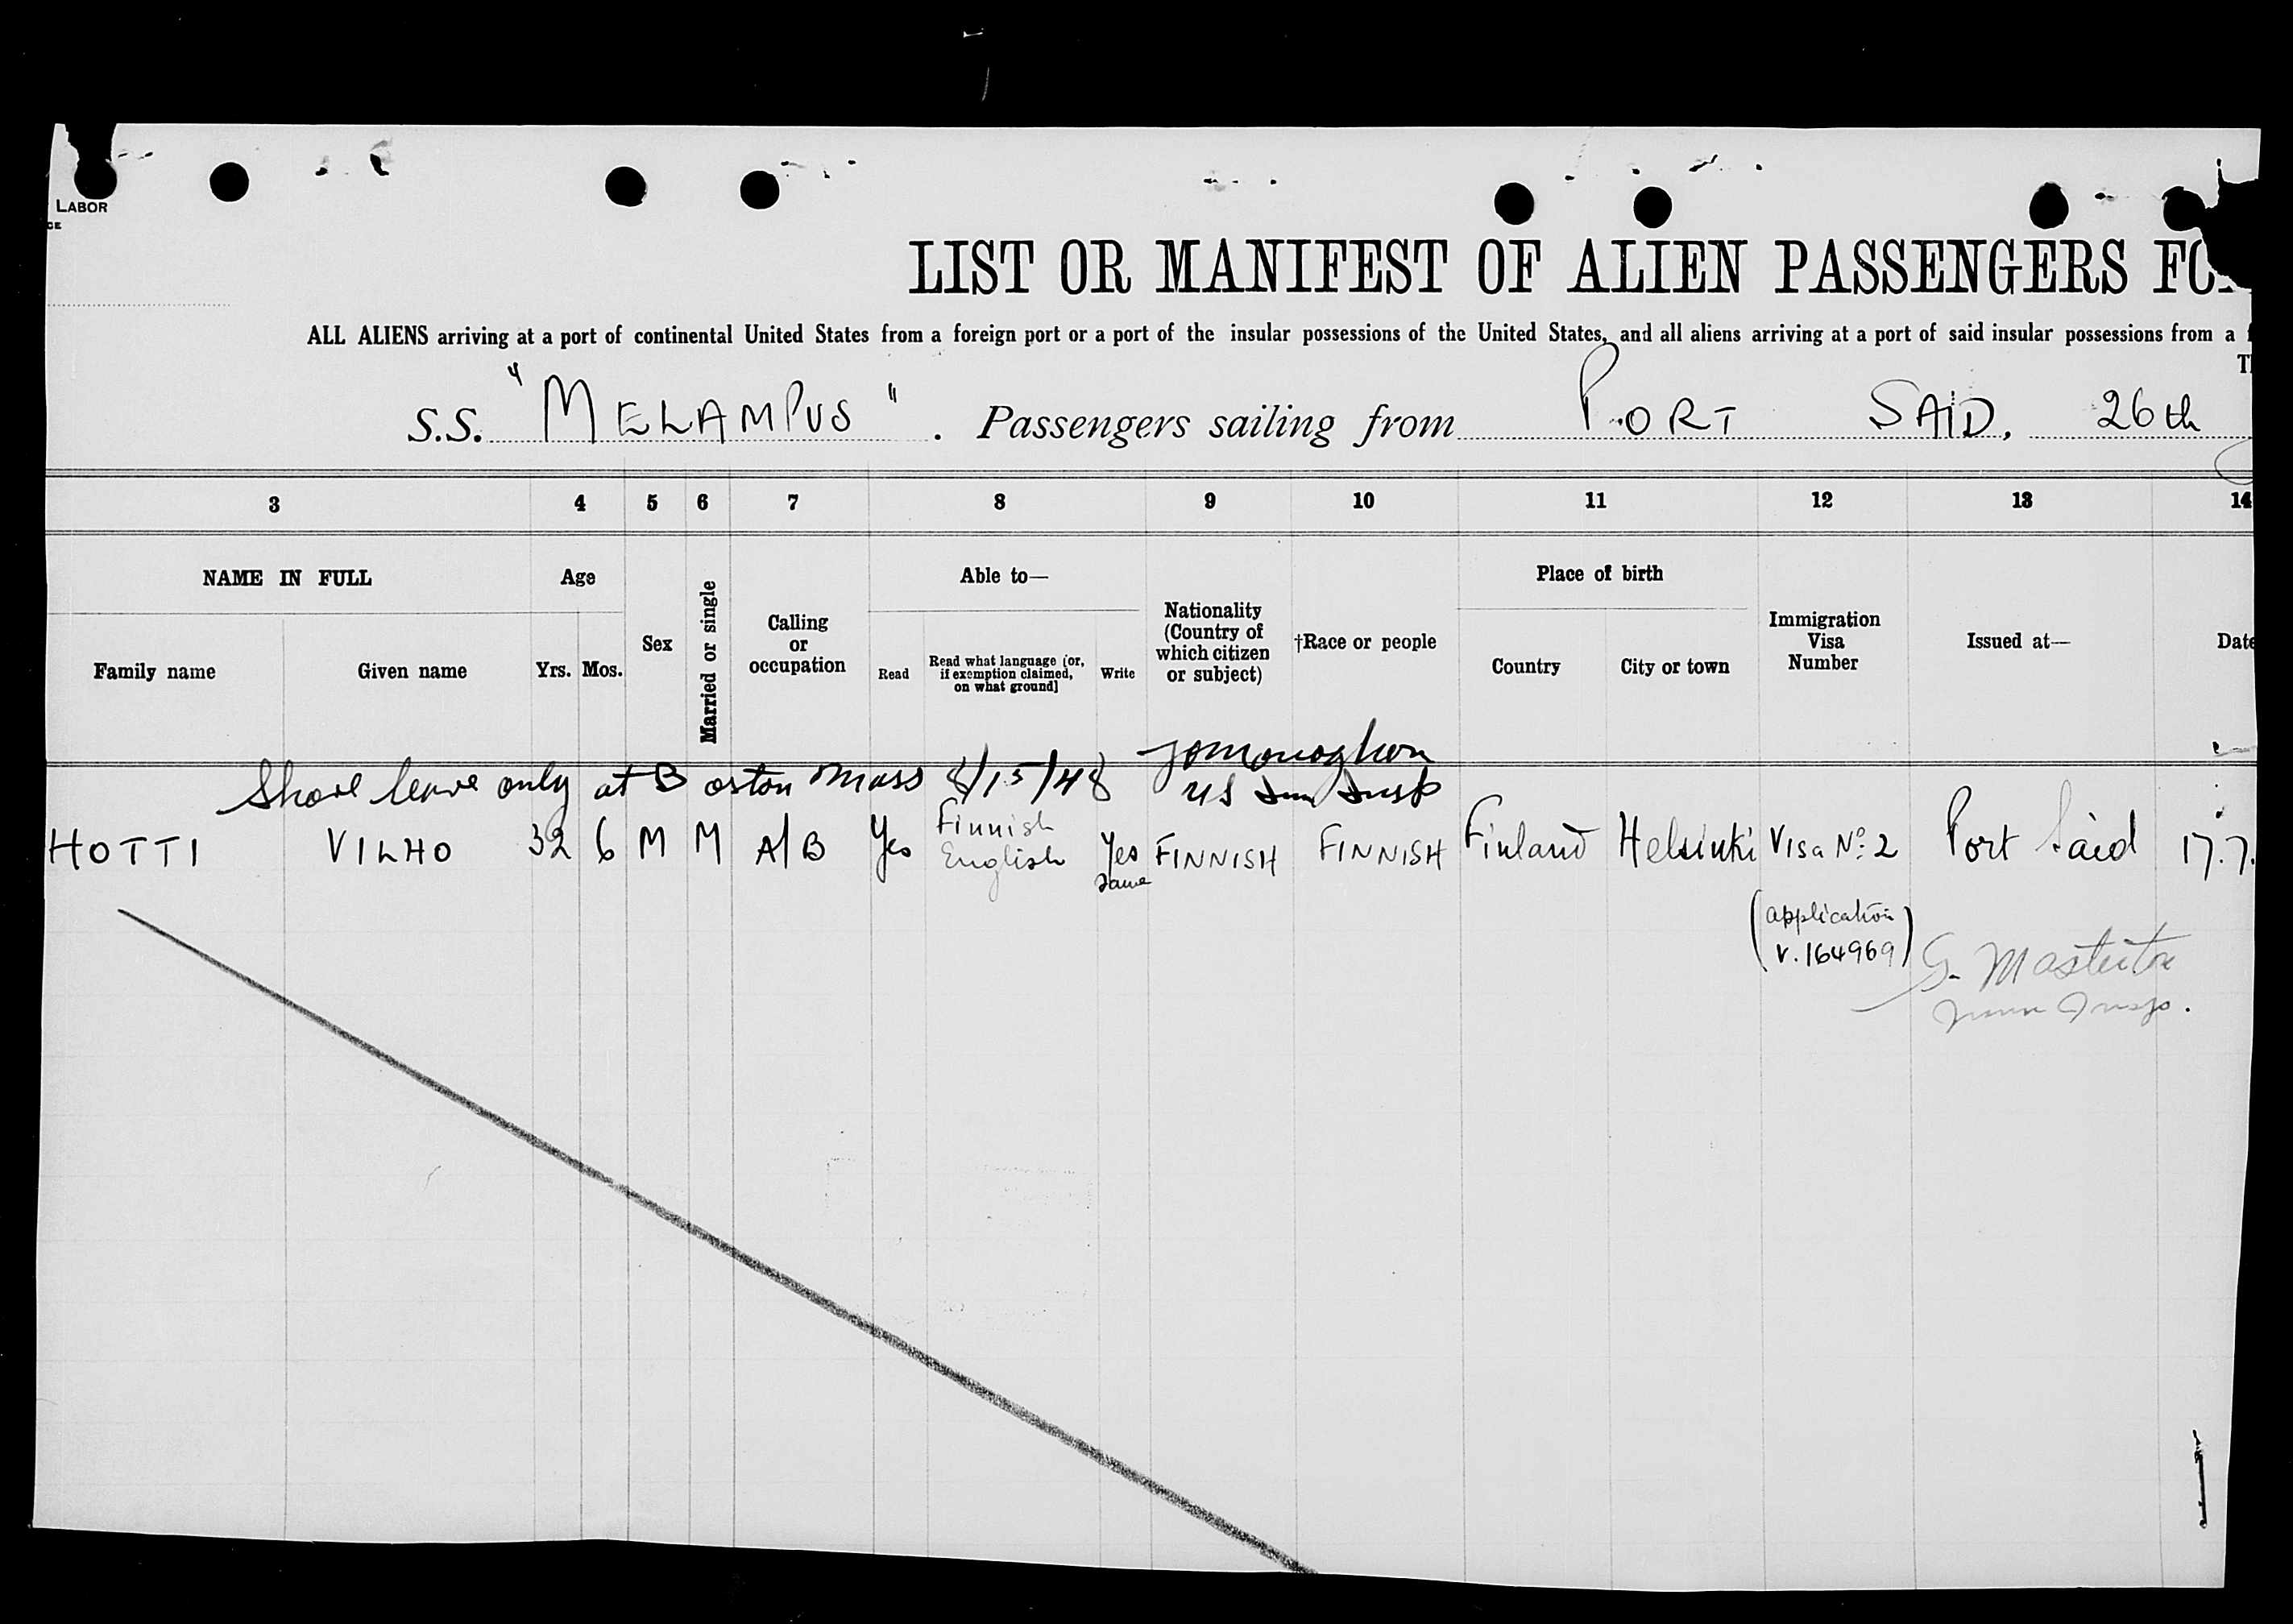 LABOR
CE
LIST OR MANIFEST OF ALIEN PASSENGERS FO
ALL ALIENS arriving at a port of continental United States from a foreign port or a port of the insular possessions of the United States, and all aliens arriving at a port of said insular possessions from a f
TH
S.S. "MELAMPUS". Passengers sailing from PORT SAID, 26th
3 4 5 6 7 8 9 10 11 12 13 14
NAME IN FULL Age Sex Married or single Calling or occupation Able to— Nationality (Country of which citizen or subject) †Race or people Place of birth Immigration Visa Number Issued at— Date
Family name Given name Yrs. Mos. Read Read what language [or, if exemption claimed, on what ground] Write Country City or town
Shore leave only at Boston Mass 8/15/48 JOMonaghan
US Imm Insp
HOTTI VILHO 32 6 M M A/B Yes Finnish English Yes same FINNISH FINNISH Finland Helsinki Visa Nº: 2 Port Said 17.7.
(application
V. 164969)
G. Masterton
Imm Insp.